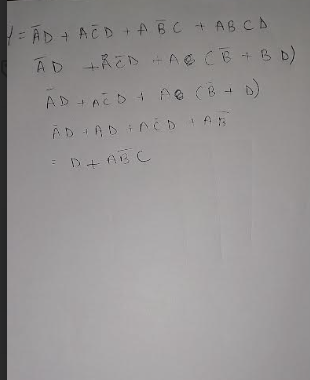 Y = A̅D + AC̅D + AB̅C + ABCD
A̅D + AC̅D + AC (B̅ + BD)
A̅D + AC̅D + AC (B̅ + D)
A̅D + AD + AC̅D + AB̅
= D + AB̅C